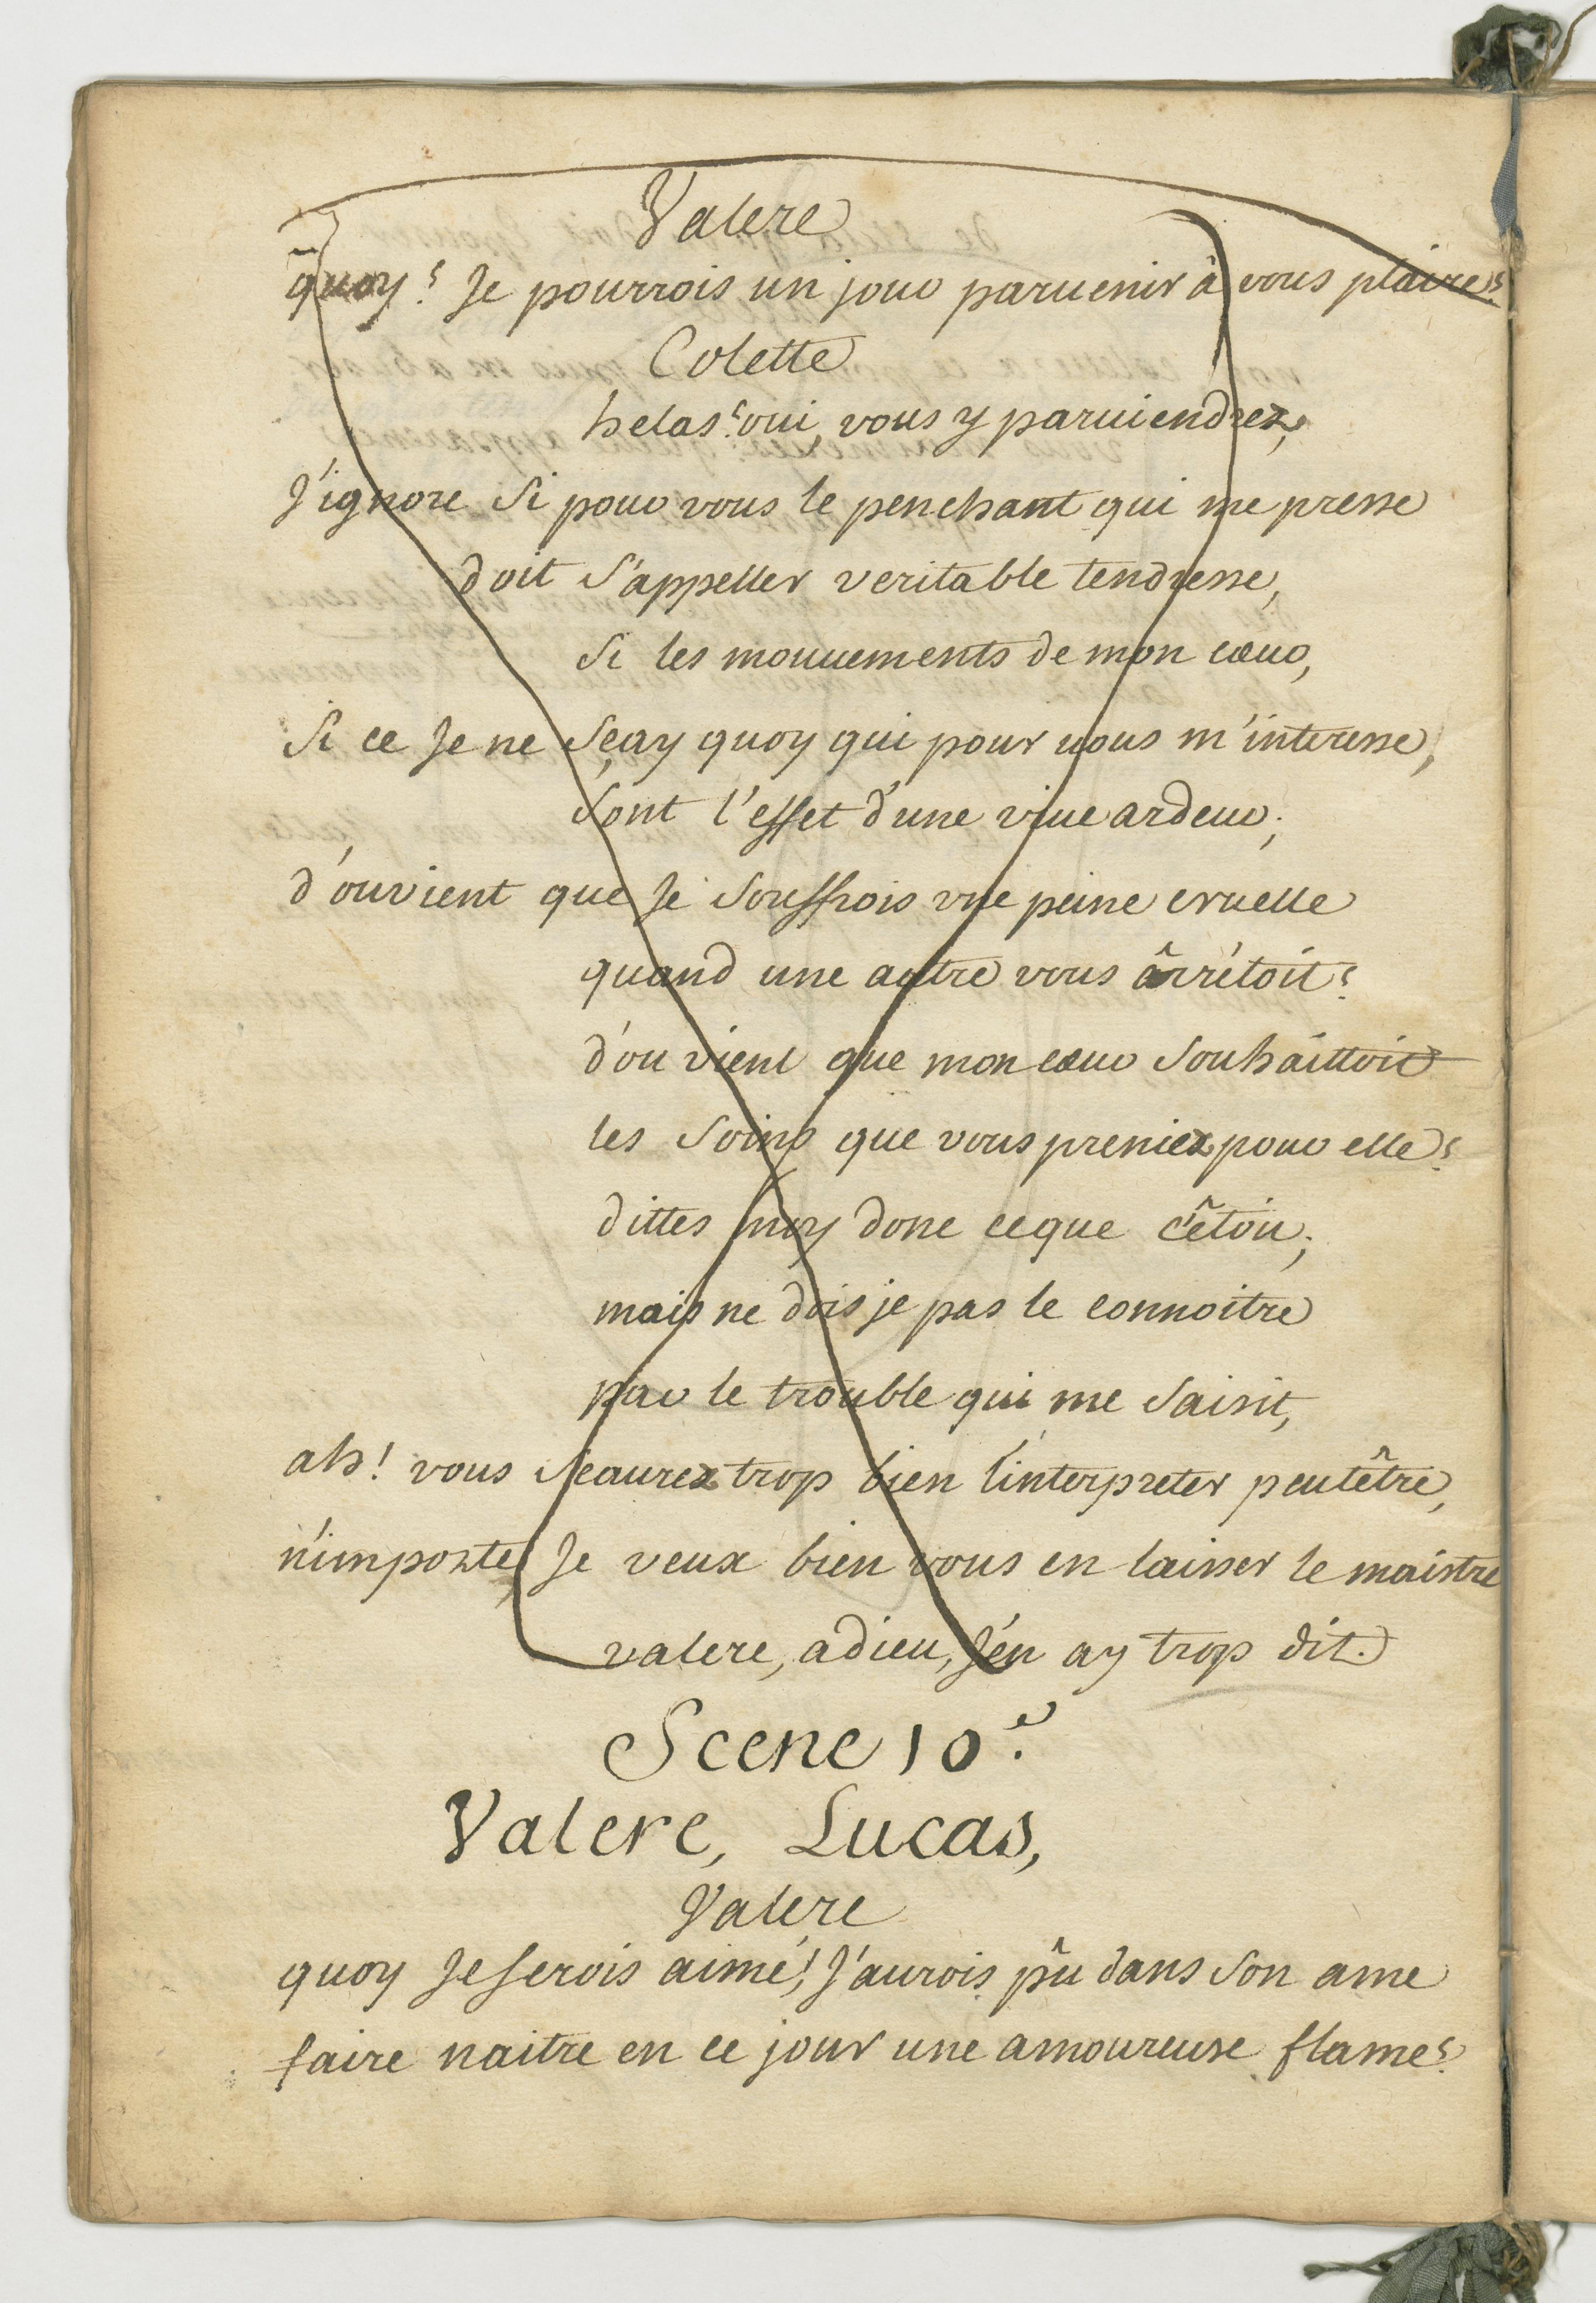 Valere
quoy? Je pourrois un jour paruenir à vous plaire?
Colette
helas! oui, vous y paruiendrez,
J'ignore si pour vous le penchant qui me presse
doit s'appeller veritable tendresse,
si les mouuements de mon cœur,
si ce je ne sçay quoy qui pour uous m'interesse,
sont l'effet d'une viue ardeur;
d'ouvient que je souffrois vne peine cruelle
quand une autre vous ârrétoit?
d'ou vient que mon cœur souhaittoit
les soins que vous preniez pour elle?
dittes moy donc ceque c'êtoit;
mais ne dois je pas le connoitre
par le trouble qui me saisit,
ah! vous sçaurez trop bien l'interpreter peutêtre,
n'importe, Je veux bien vous en laisser le maistre
valere, adieu, j'en ay trop dit.
Scene 10.e
Valere, Lucas,
Valere
quoy Je serois aimé! J'aurois pû dans son ame
faire naitre en ce jour une amoureuse flame?